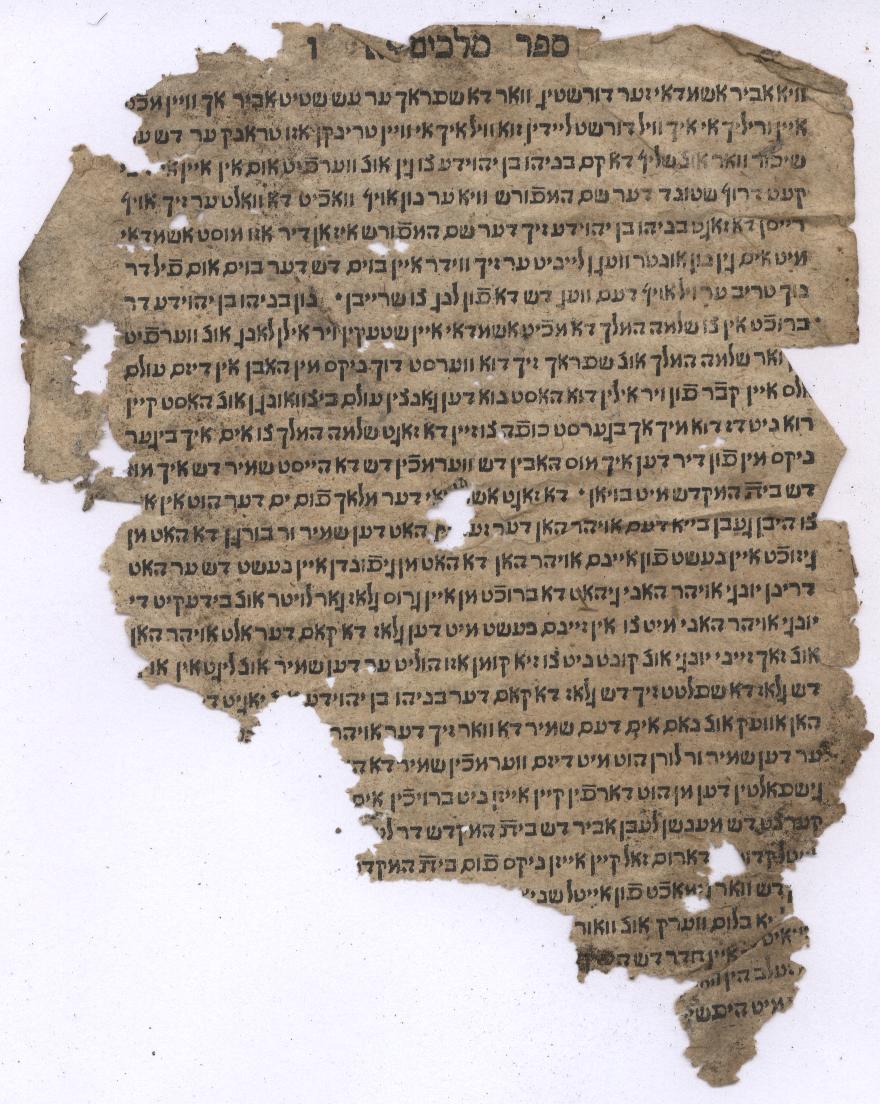 ספר מלכים א ו
וויא אביר אשמדאי זער דורשטיג וואר דא שפראך ער עש שטיט אביר אך וויין מכט
איין ורוליך אי איך וויל דורשט ליידין זוא וויל איך אי וויין טרינקן אזו טראנק ער דש ער
שיכור וואר אונ' שליף דא קם בניהו בן יהוידע צו גין אונ' ווערפיט אום אין איין
קעט דרויף שטונד דער שם המפורש וויא ער נון אויף וואכיט דא וואלט ער זיך אויף
רייסן דא זאגט בניהו בן יהוידע זיך דער שם המפורש איז אן דיר אזו מוסט אשמדאי
מיט אים גין נון אונטר וועגן לייניט ער זיך ווידר איין בוים דש דער בוים אום פיל דר
נוך טריב ער ויל אויף דעם וועג דש דא פון לנג צו שרייבן נון בניהו בן יהוידע דר
ברוכט אין צו שלמה המלך דא מכיט אשמדאי איין שטעקין ויר אילן לאנג אונ' ווערפיט
ואר שלמה המלך אונ' שפראך זיך דוא ווערסט דוך ניקס מין האבן אין דיזם עולם
אלס איין קבר פון ויר אילין דוא האסט נוא דען גאנצין עולם ביצוואונגן אונ' האסט קיין
רוא ניט דז דוא מיך אך בגערסט כופה צו זיין דא זאגט שלמה המלך צו אים איך ביגער
ניקס מין פון דיר דען איך מוס האבין דש ווערמכין דש דא הייסט שמיר דש איך מוז
דש בית המקדש מיט בויאן דא זאגט דער מלאך פום ים דער הוט אין
צו היבן געבן בייא דעם אויהר האן דער האט דען שמיר ור בורגן דא האט מן
גיזוכט איין נעשט פון איינם אויהר האן דא האט מן גיפונדן איין נעשט דש ער האט
דרינן יונגי אויהר האני גיהאט דא ברוכט מן איין גרוס גלאז גאר לויטר אונ' בידעקיט די
יונגי אויהר האני מיט צו אין זיינם נעשט מיט דען גלאז דא קאם דער אלט אויהר האן
אונ' זאך זייני יונגי אונ' קונט ניט צו זיא קומן אזו הוליט ער דען שמיר אונ' ליגט אין
דש גלאז דא שפלטט זיך דש גלאז דא קאם דער בניהו בן יהוידע אונ' יאגיט
האן אוועק אונ' נאם אים דעם שמיר דא וואר זיך דער אויהר
ער דען שמיר ור לורן הוט מיט דיזם ווערמכין שמיר דא
גישפאלטין דען מן הוט דארפין קיין אייזן ניט ברויכין
דש מענשן לעבן אביר דש בית המקדש דר
דארום זאל קיין אייזן ניקס פום בית המקדש
דש וואר גימאכט פון אייטל
בלום ווערק אונ'
איין חדר דש
הין
מיט הימש